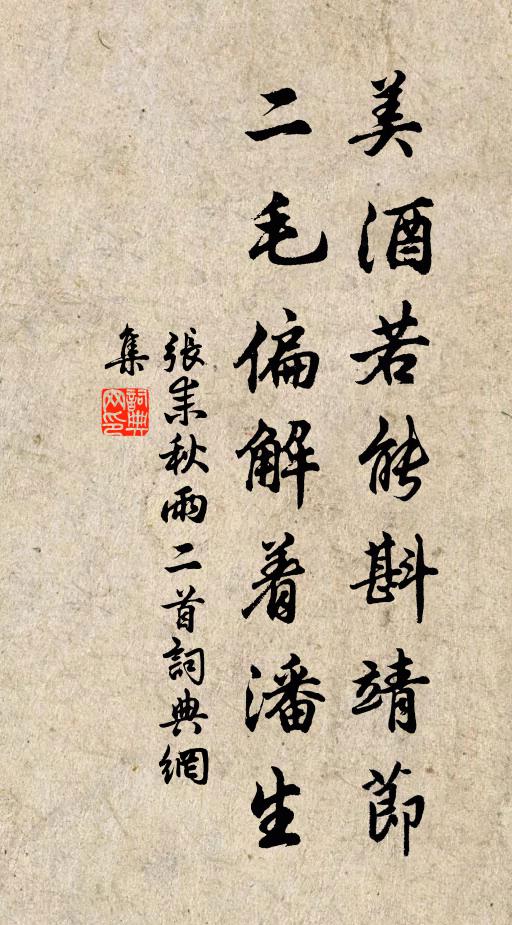 美酒若能斟靖節
二毛偏解着潘生
張耒秋雨二首詞典網
集
詞典網印